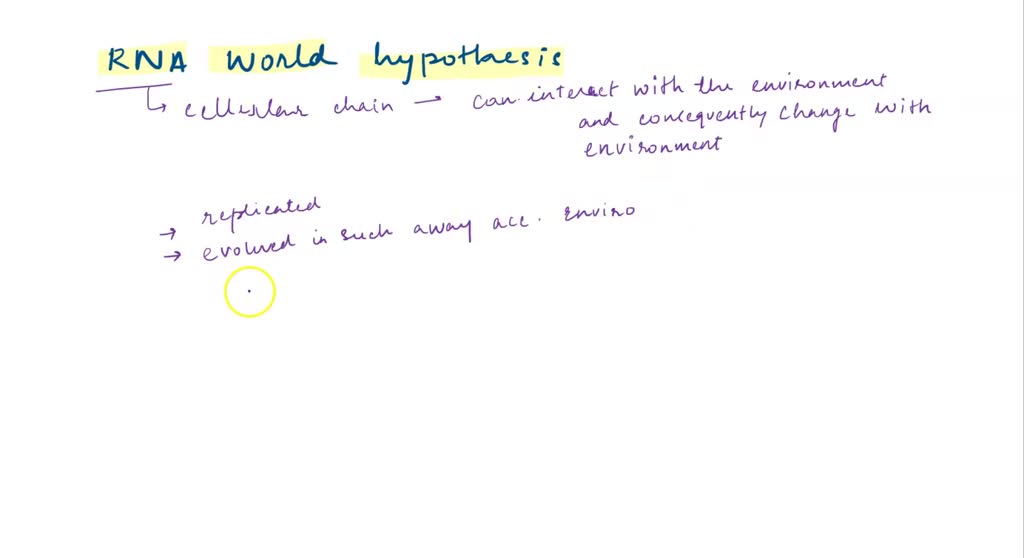 RNA world hypothesis
↳ cellular chain → can interact with the environment
and consequently change with
environment
→ replicated
→ evolved in such away acc. enviro